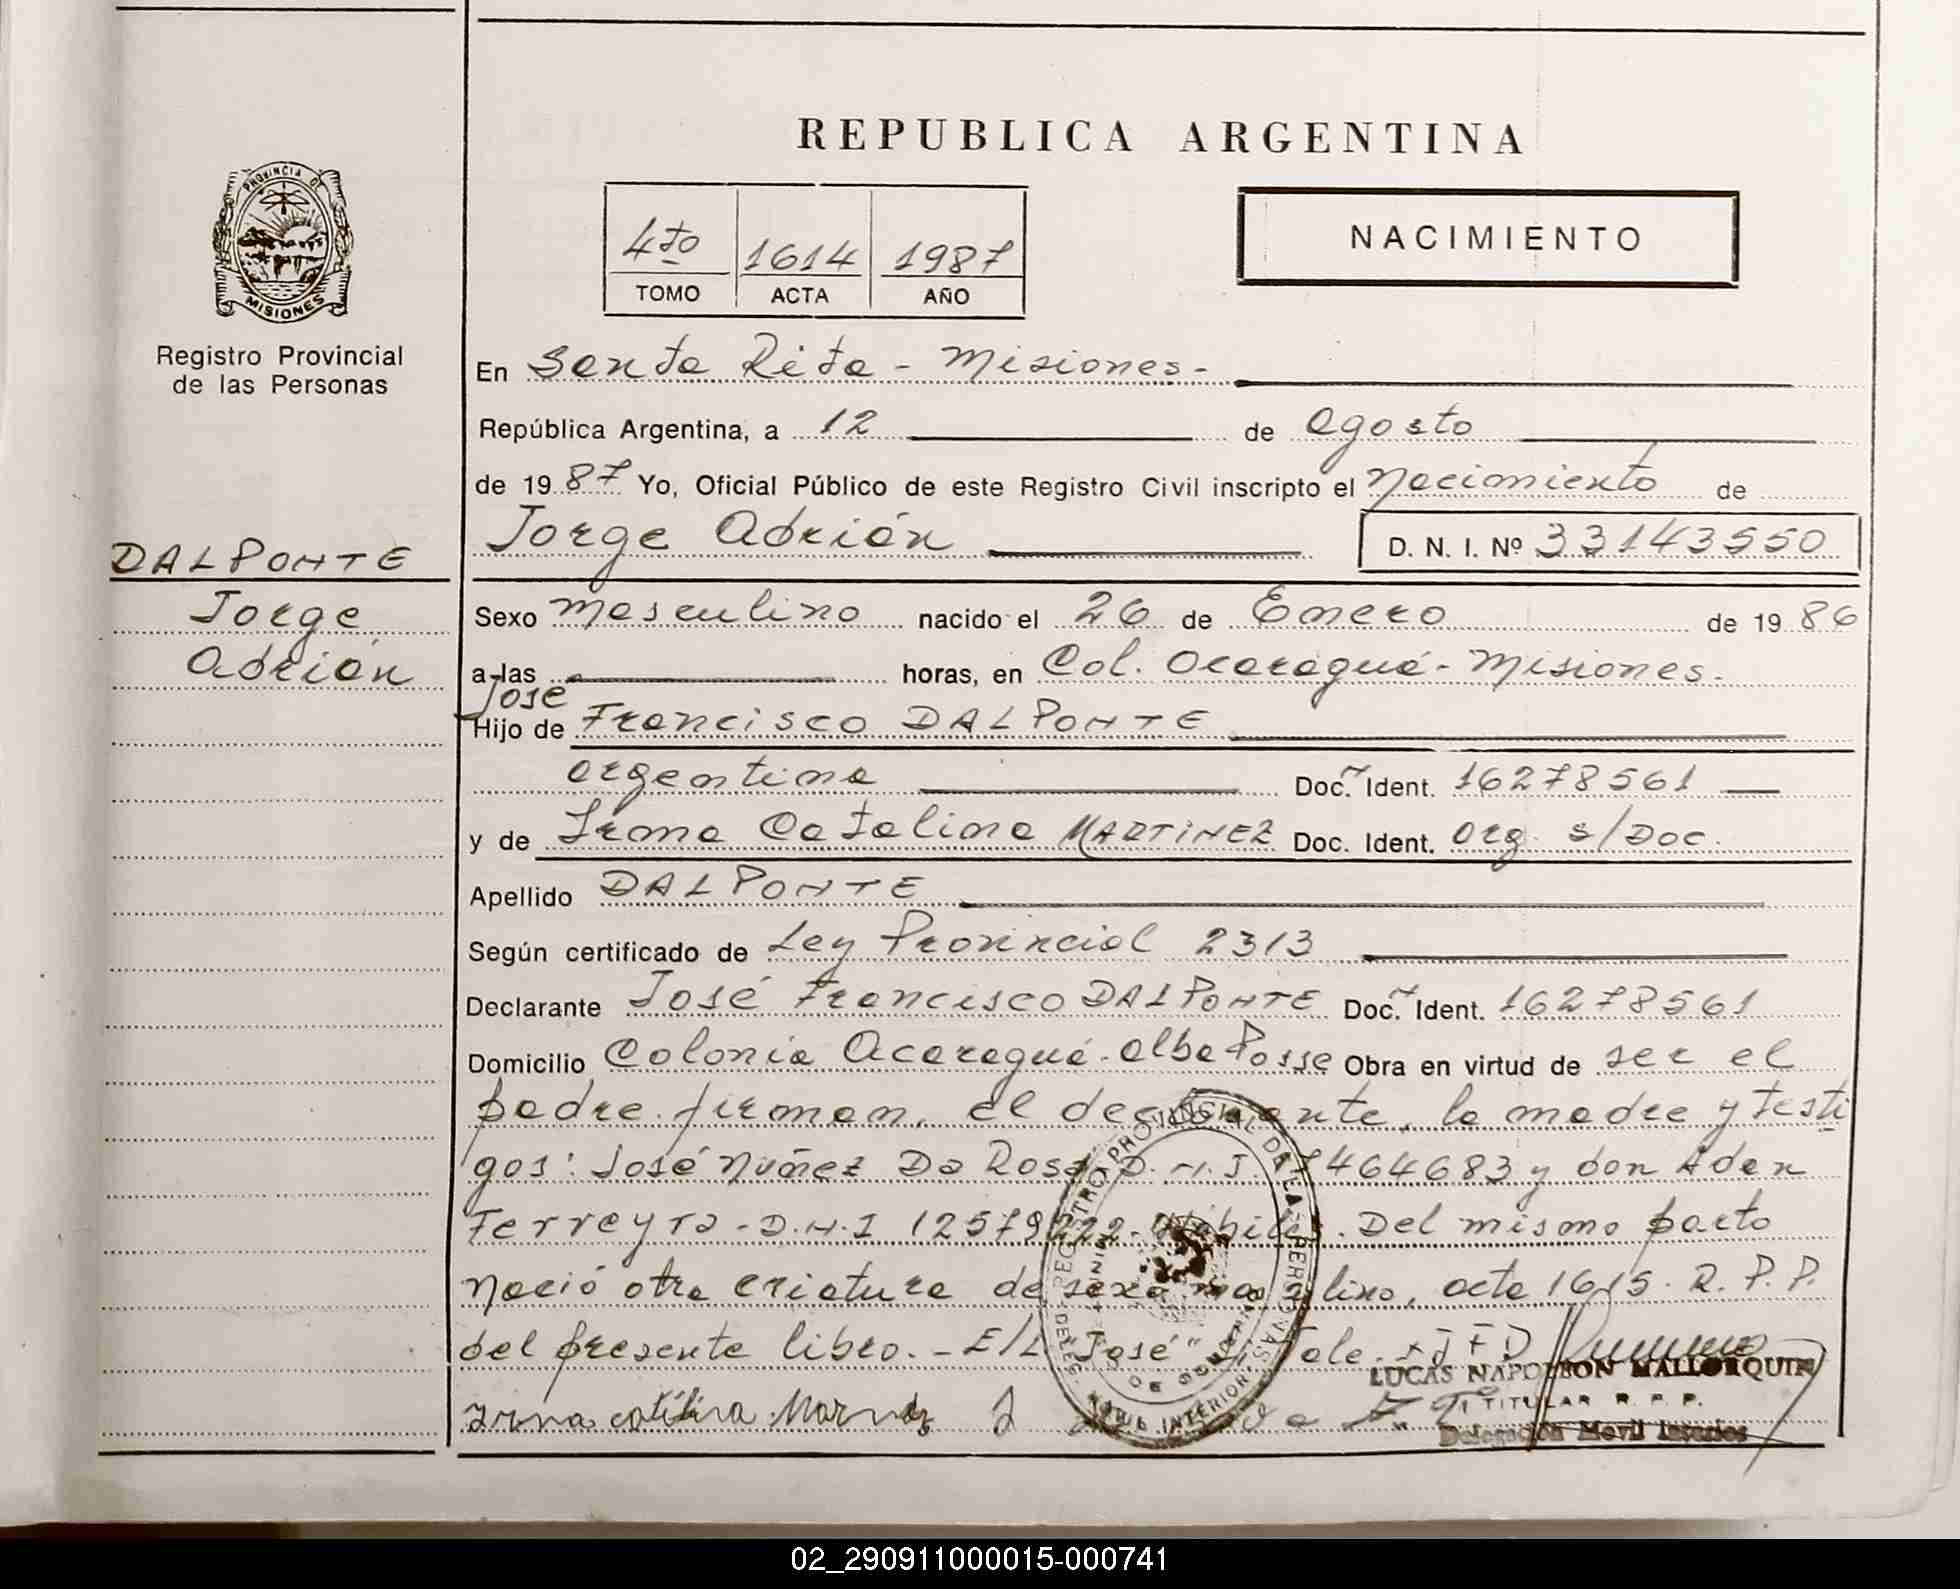 REPUBLICA ARGENTINA
PROVINCIA DE
MISIONES
Registro Provincial
de las Personas
4to 1614 1987
TOMO ACTA AÑO
NACIMIENTO
En Santa Rita - Misiones -
República Argentina, a 12 de agosto
de 1987 Yo, Oficial Público de este Registro Civil inscripto el Nacimiento de
Jorge Adrián D. N. I. Nº 33143550
DALPONTE
Jorge
Adrián
Sexo masculino nacido el 26 de Enero de 1986
a las horas, en Col. Acaraguá - Misiones -
José
Hijo de Francisco DALPONTE
argentino Doc. Ident. 16278561
y de Irma Catalina MARTINEZ Doc. Ident. arg. s/Doc.
Apellido DALPONTE
Según certificado de Ley Provincial 2313
Declarante José Francisco DALPONTE Doc. Ident. 16278561
Domicilio Colonia Acaraguá - Alba Posse Obra en virtud de ser el
padre. firman, el declarante, la madre y testi
gos: José Nuñez Da Rosa D.N.I. 7464683 y don Adan
Ferreyra - D.N.I 12579222 - Hábiles. Del mismo parto
nació otra criatura de sexo masculino, acta 1615. R. P. P.
del presente libro. - E/L "José" Si, Vale. JFD
LUCAS NAPOLEON MALLORQUIN
TITULAR R. P. P.
Delegación Movil Interior
Irma catilina Marnes
02_290911000015-000741